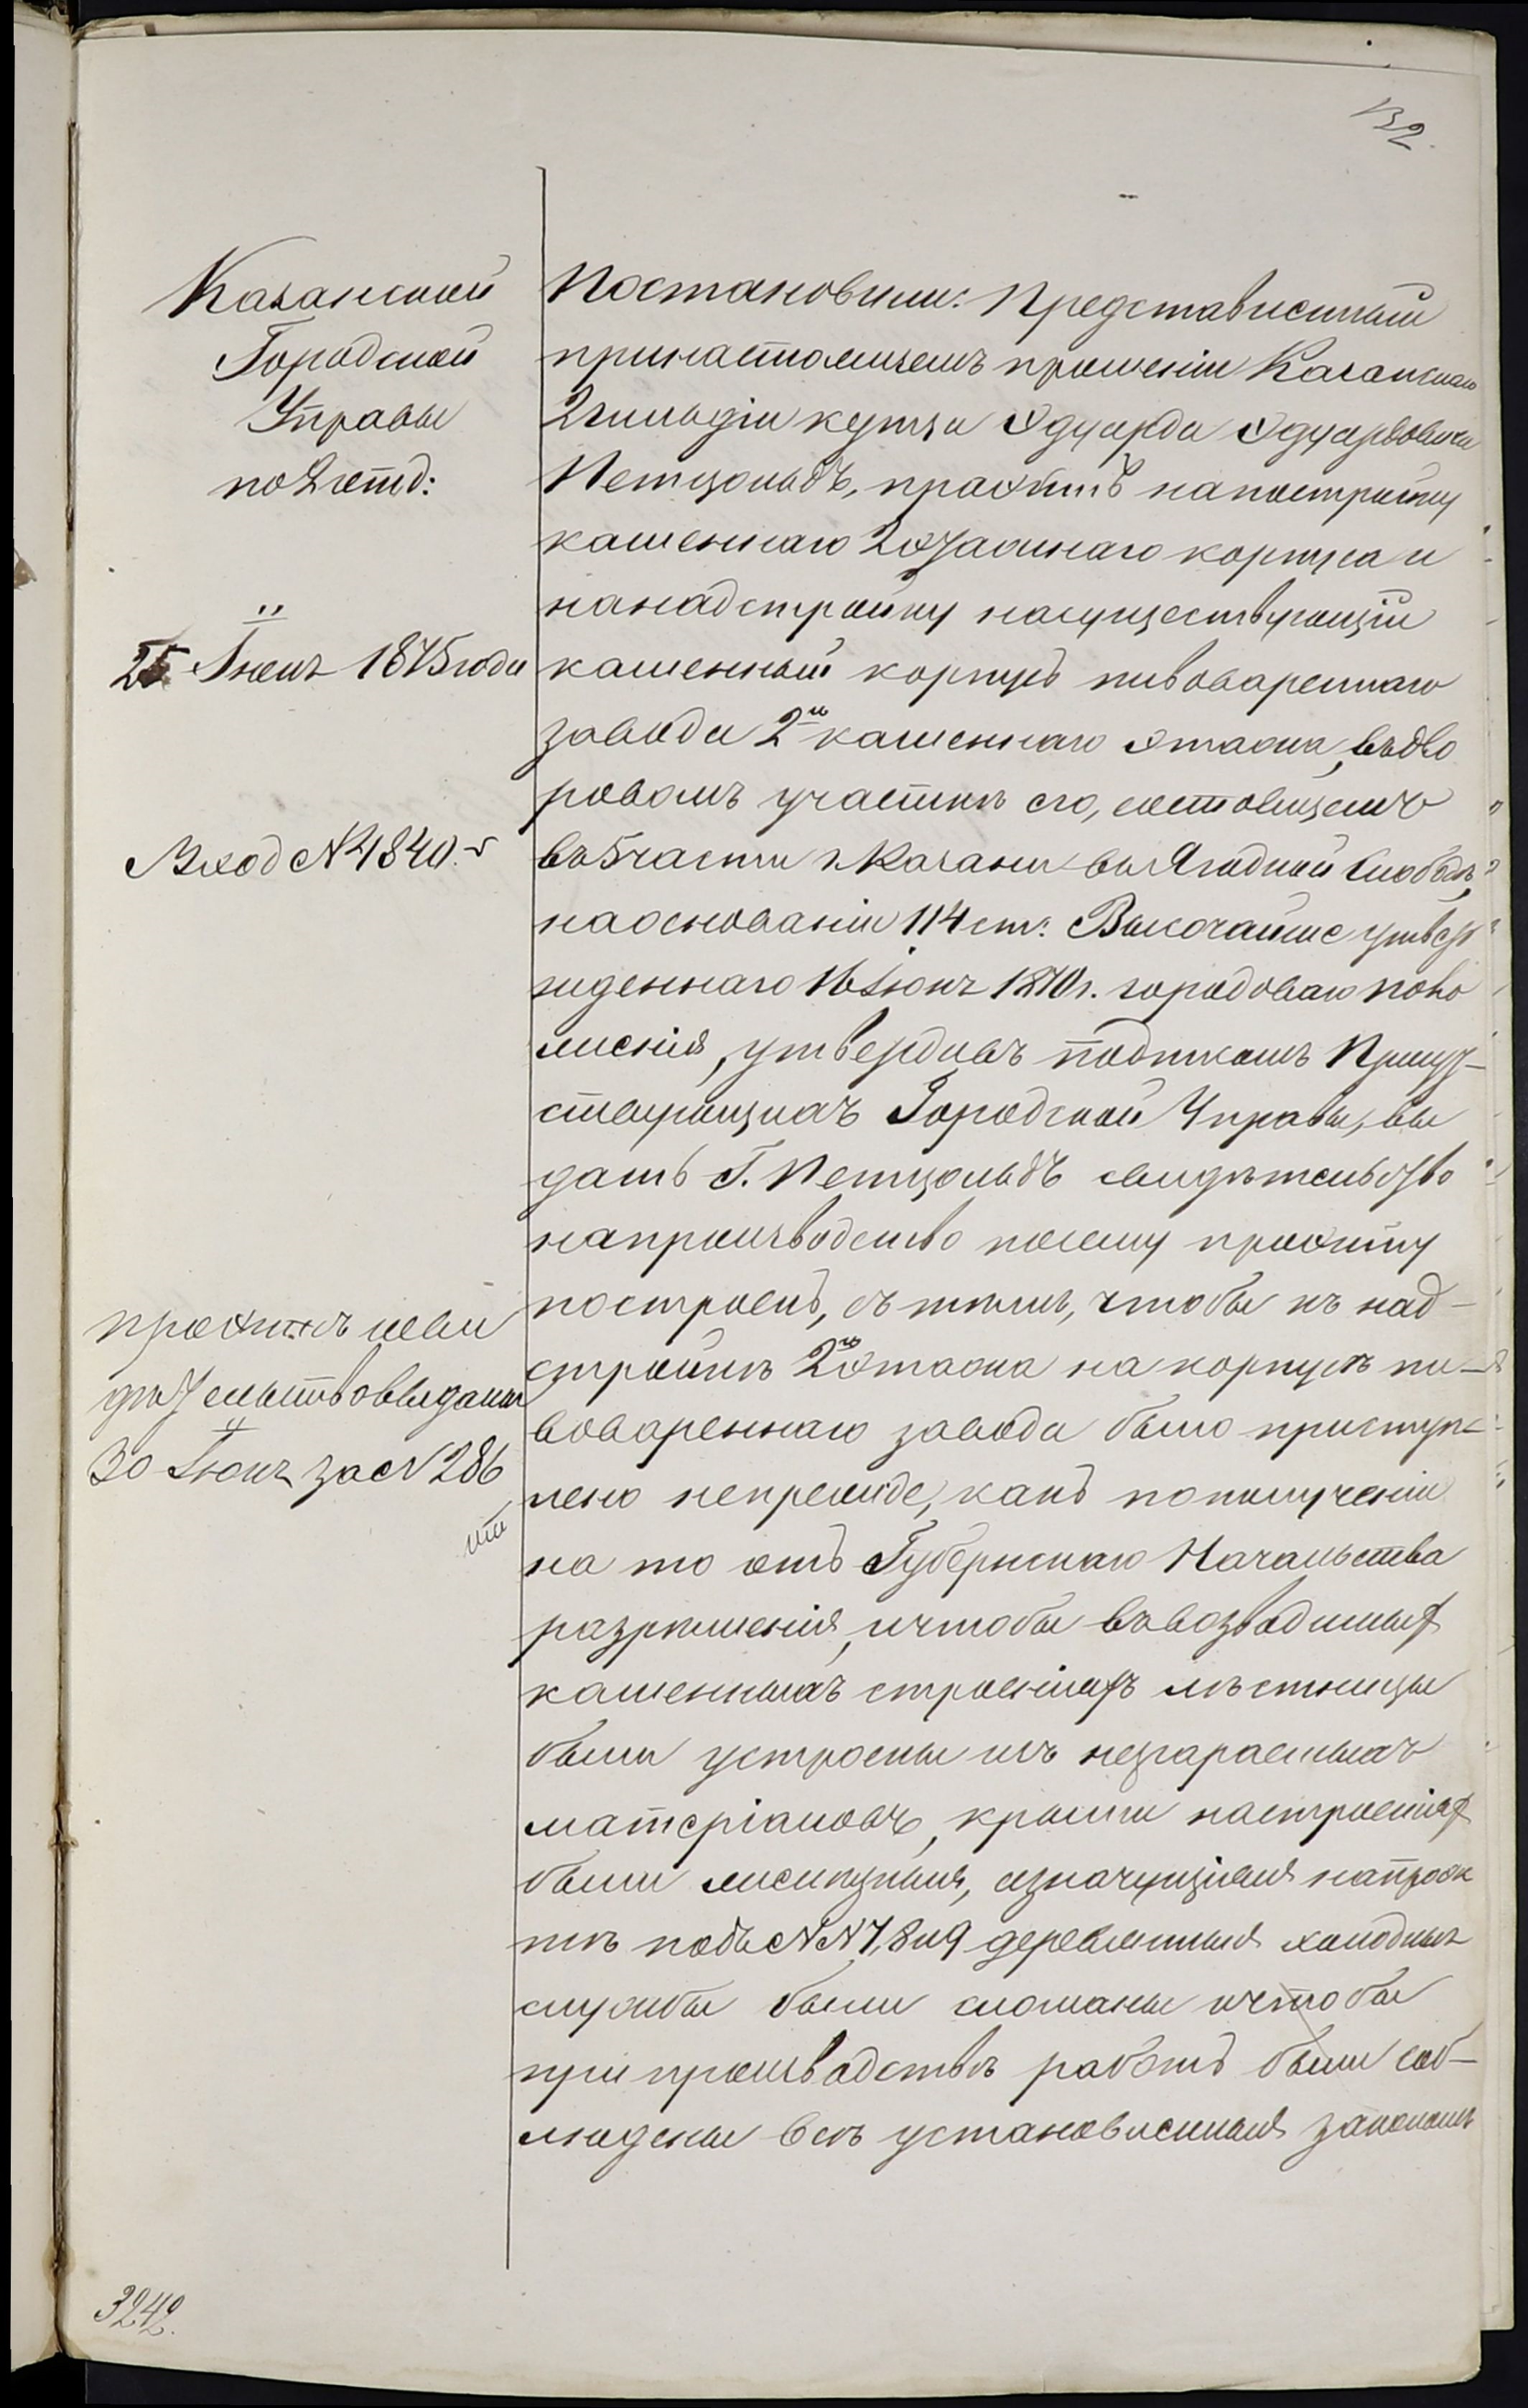 132.
Казанской
Городской
Управы
по 2 отд:
25 Іюня 1875 года
Вход № 4840.
проэктъ и сви
дѣтельство выданы
30 Іюня за № 286
Постановили: Представленный
при настоящемъ прошеніи Казанскаго
2 гильдіи купца Эдуарда Эдуардовича
Петцольдъ, проэктъ на постройку
каменнаго 2 этажнаго корпуса и
на надстройку на существующій
каменный корпусъ пивовареннаго
завода 2го каменнаго этажа, въ дво
ровомъ участкѣ его, состоящемъ
въ 5 части г. Казани въ Ягодной Слободѣ,
на основаніи 114 ст: Высочайше утвер
жденнаго 16 Іюня 1870 г. городоваго поло
женія, утвердивъ подписомъ Присут-
ствующихъ Городской Управы, вы
дать Г. Петцольдъ свидѣтельство
на производство по сему проэкту
построекъ, съ тѣмъ, чтобы къ над-
стройкѣ 2го этажа на корпусѣ пи-
вовареннаго завода было приступ-
лено не прежде, какъ по полученіи
на то отъ Губернскаго Начальства
разрѣшенія, и чтобы въ возводимыхъ
каменныхъ строеніяхъ лѣстницы
были устроены изъ незгараемыхъ
матеріаловъ, крыши на строеніяхъ
были желѣзныя, а значущіяся на проэк
тѣ подъ №№ 7, 8 и 9 деревянныя холодныя
службы были сломаны и чтобы
при производствѣ работъ были соб-
людены всѣ установленныя закономъ
3242.